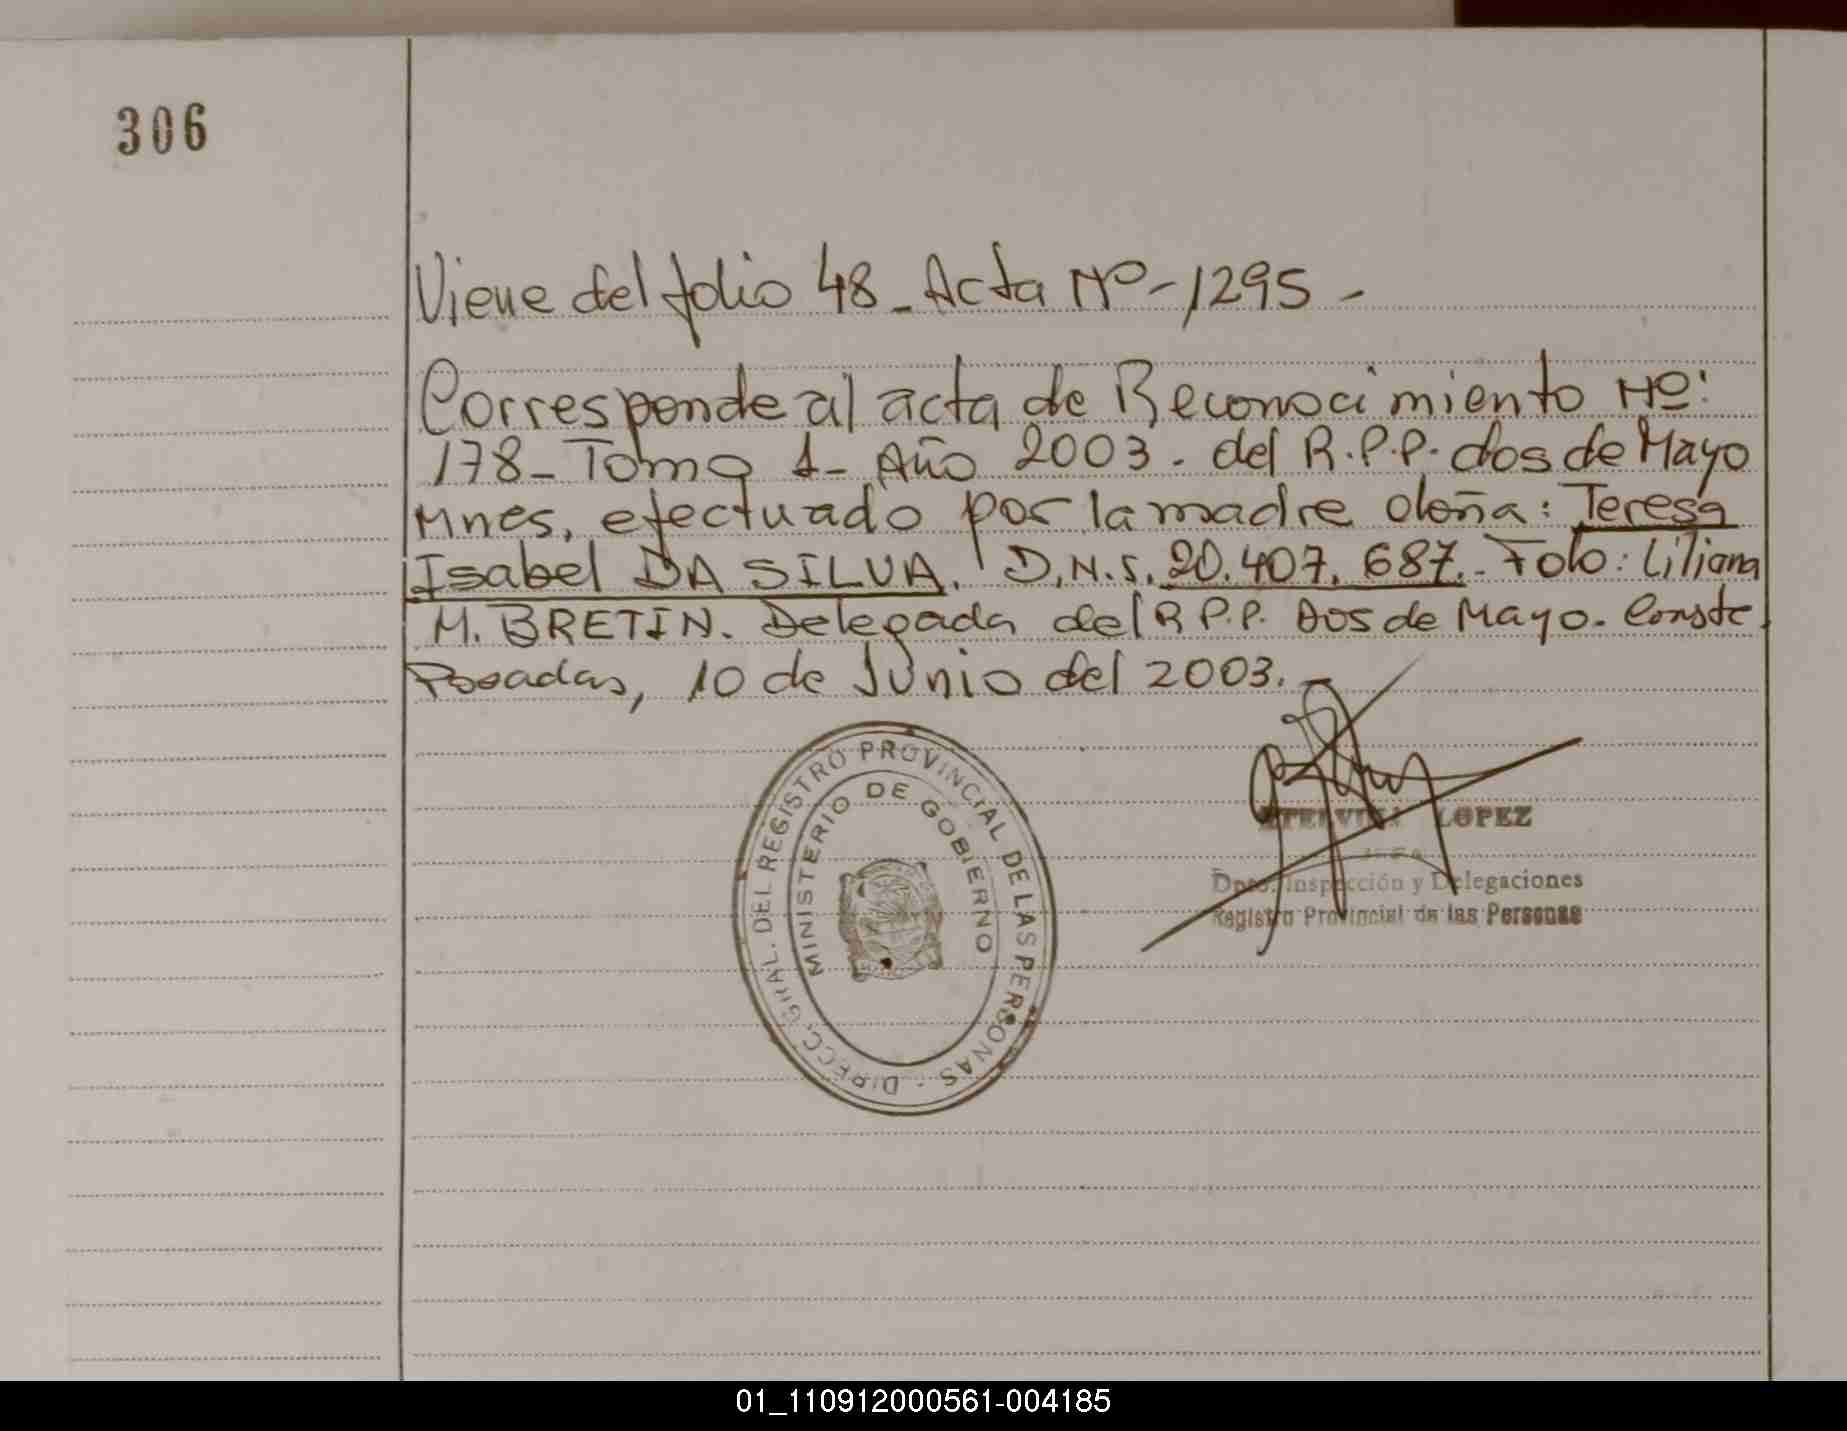 306
Viene del folio 48 - Acta Nº - 1295 -
Corresponde al acta de Reconocimiento Nº:
178 - Tomo 1 - Año 2003. del R.P.P. dos de Mayo
Mnes, efectuado por la madre doña: Teresa
Isabel DA SILVA. D.N.I. 20.407.687. - Fdo: Liliana
M. BRETIN. Delegada del R.P.P. Dos de Mayo. Conste.
Posadas, 10 de Junio del 2003.
DIRECC. GRAL. DEL REGISTRO PROVINCIAL DE LAS PERSONAS -
MINISTERIO DE GOBIERNO
LOPEZ
Dpto. Inspección y Delegaciones
Registro Provincial de las Personas
01_110912000561-004185